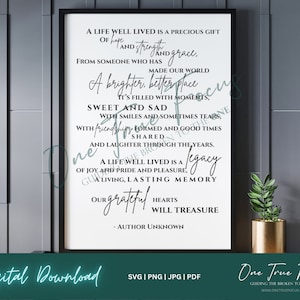 A LIFE WELL LIVED IS A PRECIOUS GIFT
OF hope AND strength AND grace,
FROM SOMEONE WHO HAS
MADE OUR WORLD
A brighter, better place
IT'S FILLED WITH MOMENTS,
SWEET AND SAD
WITH SMILES AND SOMETIMES TEARS,
WITH friendships FORMED AND GOOD TIMES
SHARED
AND LAUGHTER THROUGH THE YEARS.
A LIFE WELL LIVED IS A legacy
OF JOY AND PRIDE AND PLEASURE,
A LIVING, LASTING MEMORY
OUR grateful HEARTS
WILL TREASURE
- AUTHOR UNKNOWN
One True Focus
Digital Download
SVG | PNG | JPG | PDF
One True
GUIDING THE BROKEN TO